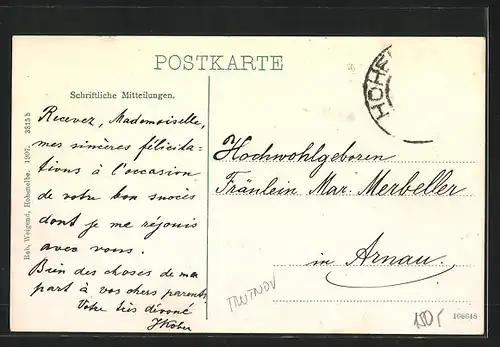 POSTKARTE
HOHE
Schriftliche Mitteilungen.
Recevez, Mademoiselle,
mes sincères félicita-
tions à l'occasion
de votre bon succès
dont je me réjouis
avec vous.
Bien des choses de ma
part à vos chers parents.
Votre très dévoué
JKober
Rob. Weigend, Hohenelbe. 1907. 3815 b
Hochwohlgeboren
Fräulein Mar. Merbeller
in Arnau.
TRUTNOV
150,-
106648